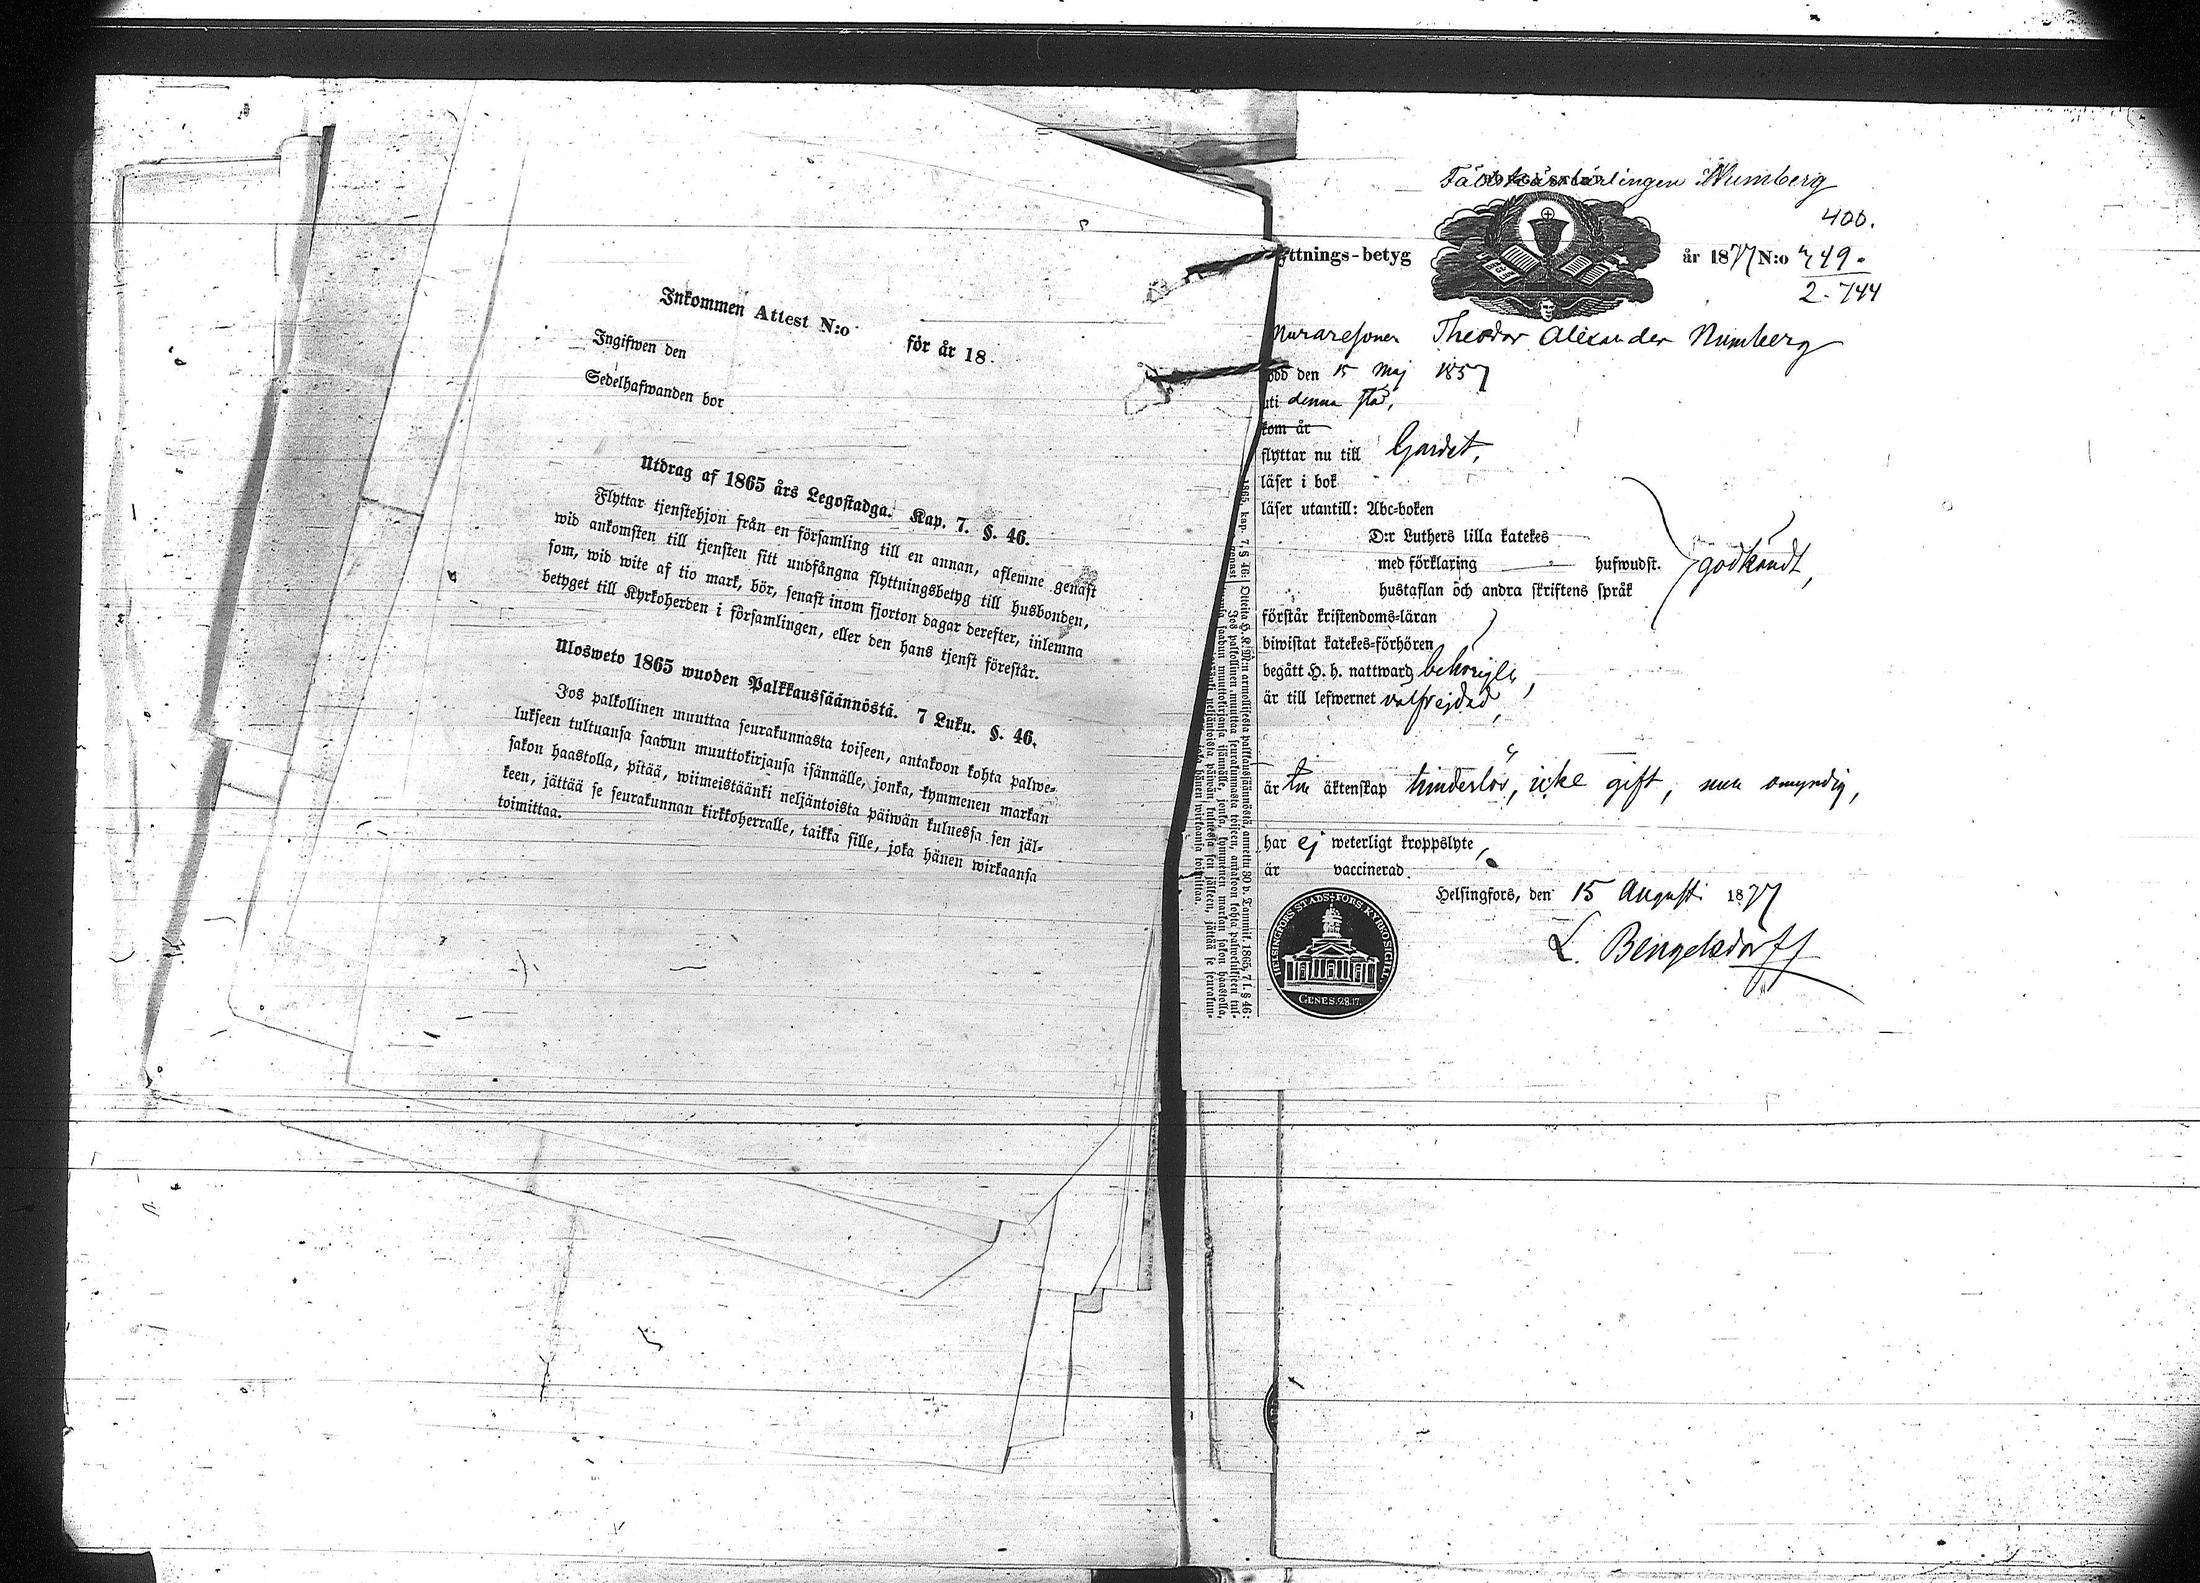 Inkommen Attest N:o för år 18
Ingifwen den
Sedelhafwanden bor
Utdrag af 1865 års Legostadga. Kap. 7. §. 46.
Flyttar tjenstehjon från en församling till en annan, aflemne genast
wid ankomsten till tjensten sitt undfångna flyttningsbetyg till husbonden,
som, wid wite af tio mark, bör, senast inom fjorton dagar derefter, inlemna
betyget till Kyrkoherden i församlingen, eller den hans tjenst förestår.
Ulosweto 1865 wuoden Palkkaussäännöstä. 7 Luku. §. 46.
Jos palkollinen muuttaa seurakunnasta toiseen, antakoon kohta palwe-
lukseen tultuansa saadun muuttokirjansa isännälle, jonka, kymmenen markan
sakon haastolla, pitää, wiimeistäänki neljäntoista päiwän kuluessa sen jäl-
keen, jättää se seurakunnan kirkkoherralle, taikka sille, joka hänen wirkaansa
toimittaa.
Numberg
400.
yttnings-betyg år 1877 N:o 449.
2.744
Theodor Alexander Numberg
född den 15 Maj 1857
uti denna stad,
kom år
flyttar nu till Gardet,
läser i bok
läser utantill: Abc-boken
D:r Luthers lilla katekes
med förklaring hufwudst. godkändt,
hustaflan och andra skriftens språk
förstår kristendoms-läran
biwistat katekes-förhören
begått H. h. nattward behörigen,
är till lefwernet välfrejdad,
är till äktenskap hinderlös, icke gift, men omyndig,
har ej weterligt kroppslyte,
är vaccinerad.
Helsingfors, den 15 Augusti 1877
L. Bengelsdorff
HELSINGFORS STADS-FÖRS. KYRKO SIGILL.
GENES. 28.17.